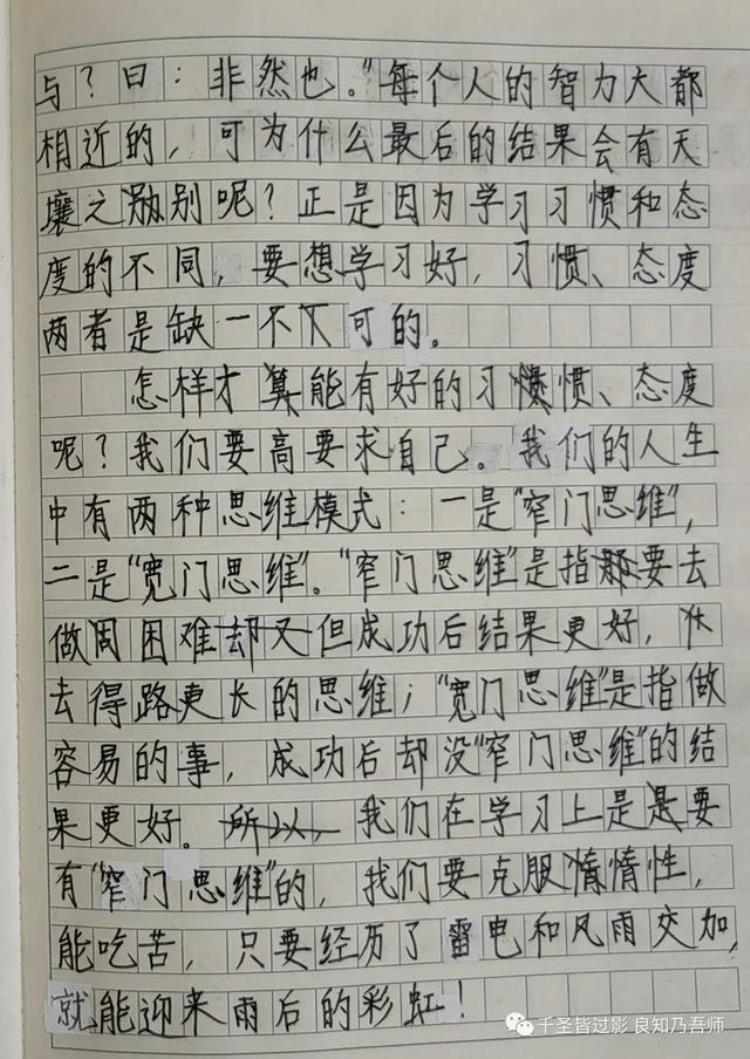 与?曰:非然也。"每个人的智力大都
相近的,可为什么最后的结果会有天
壤之别呢?正是因为学习习惯和态
度的不同,要想学习好,习惯、态度
两者是缺一不可的。
怎样才算能有好的习惯、态度
呢?我们要高要求自己。我们的人生
中有两种思维模式:一是"窄门思维",
二是"宽门思维"。"窄门思维"是指要去
做困难却又但成功后结果更好,
去得路更长的思维;"宽门思维"是指做
容易的事,成功后却没"窄门思维"的结
果更好。所以,我们在学习上是是要
有"窄门思维"的,我们要克服惰惰性,
能吃苦,只要经历了雷电和风雨交加,
就能迎来雨后的彩虹!
千圣皆过影 良知乃吾师